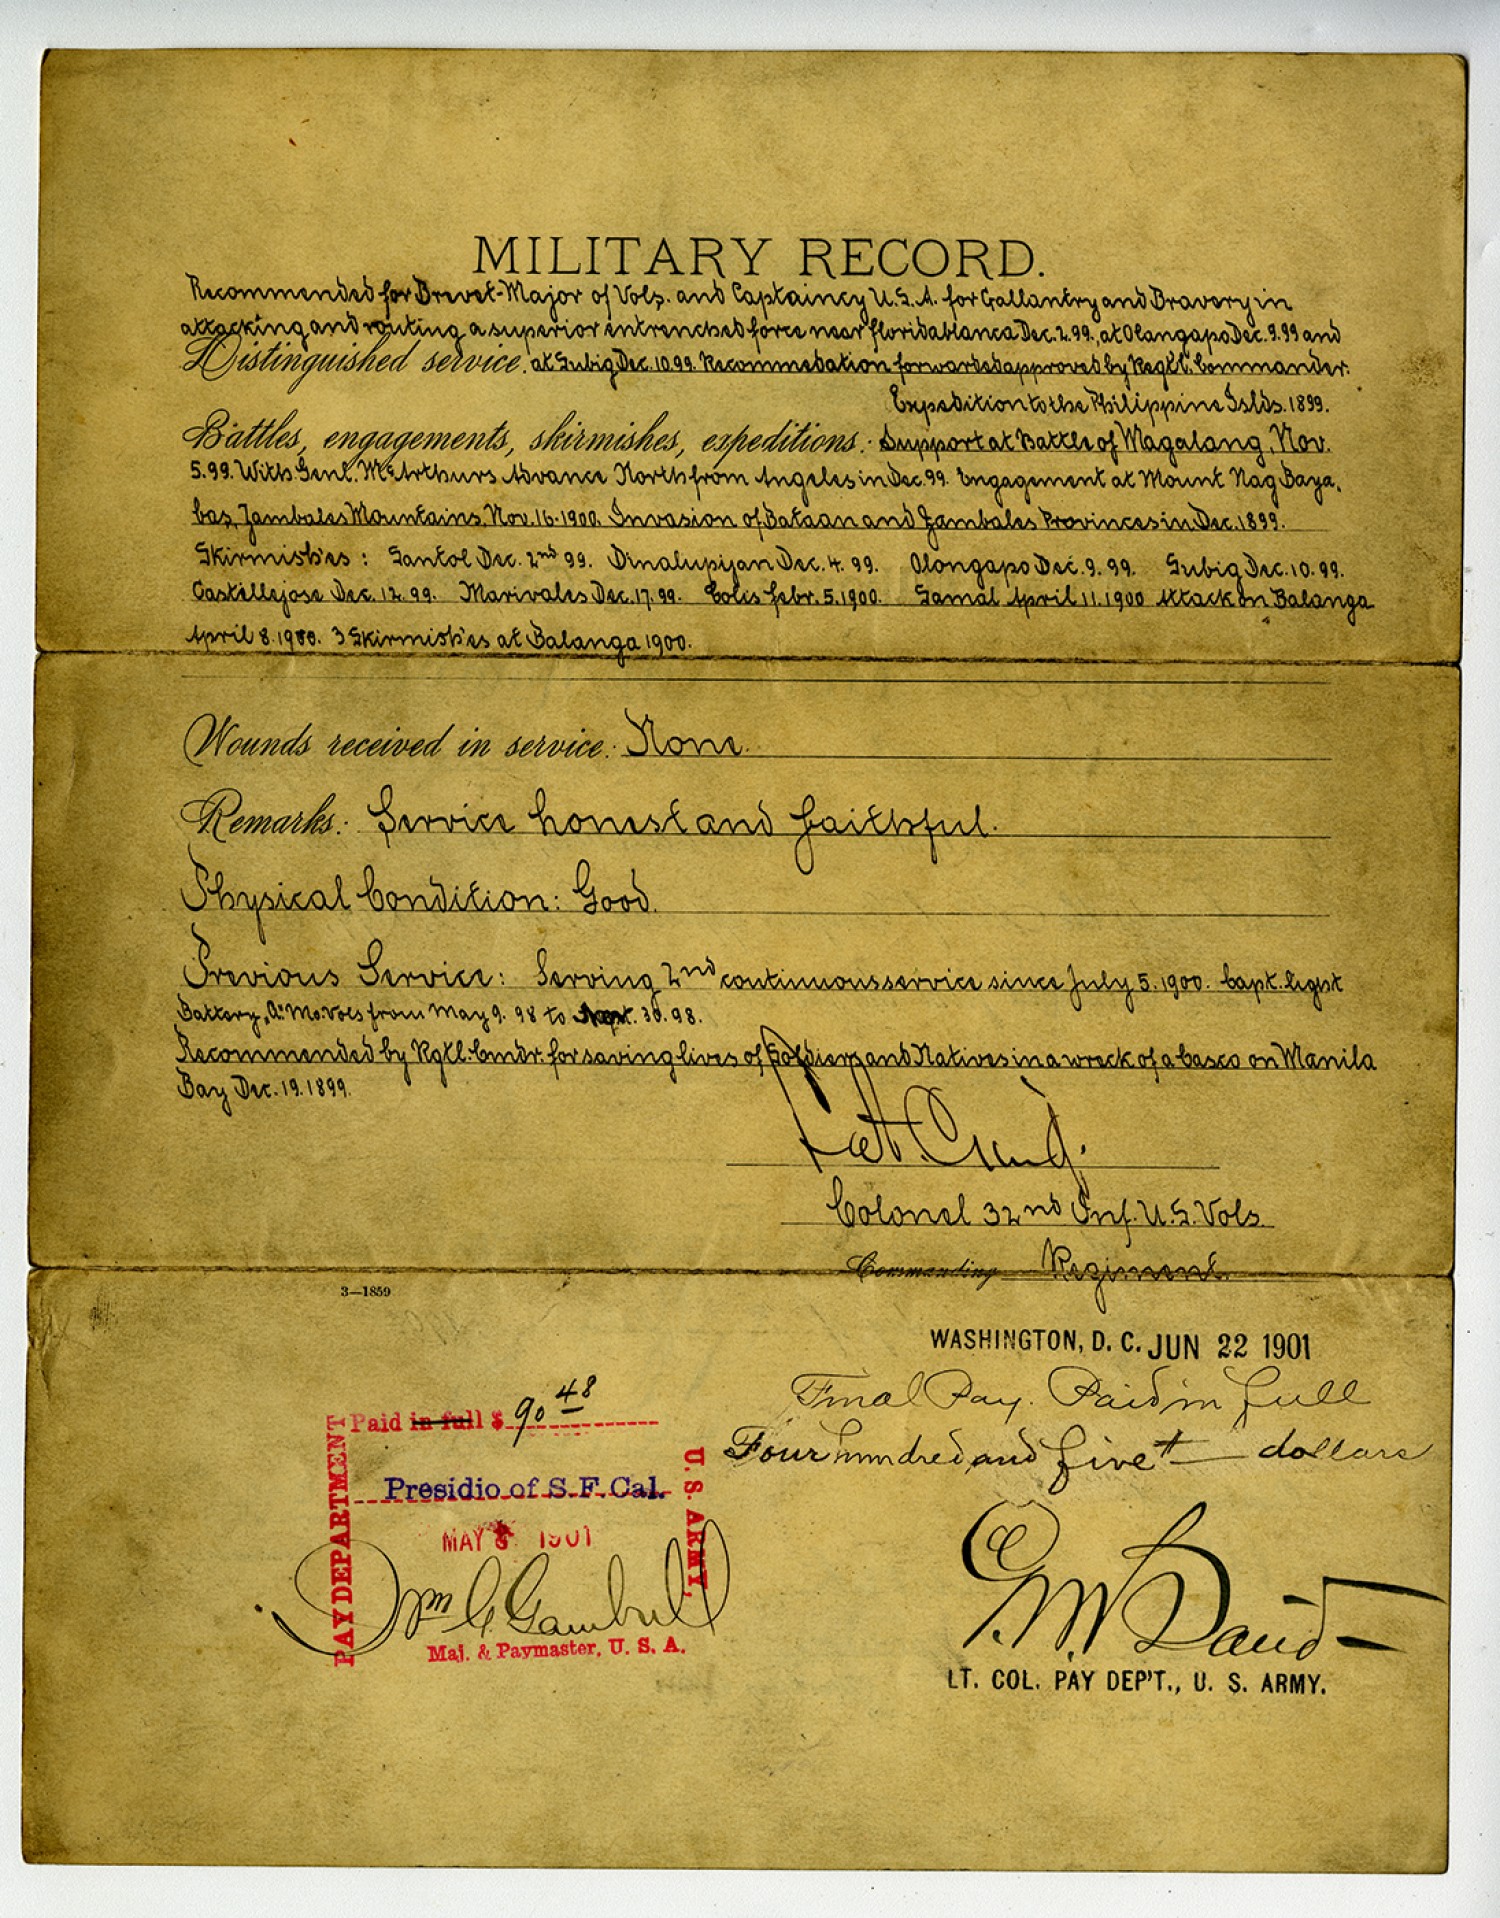 MILITARY RECORD.
Recommended for Brevet-Major of Vols. and Captaincy U.S.A. for Gallantry and Bravery in
attacking and routing a superior entrenched force near Floridablanca Dec. 2. 99., at Olangapo Dec. 9. 99 and
Distinguished service. at Subig Dec. 10. 99. Recommedation forwarded approved by Regtl. Commander.
Expedition to the Philippine Islds. 1899.
Battles, engagements, skirmishes, expeditions: Support at Battle of Magalang, Nov.
5. 99. With Genl. McArthurs Advance North from Angeles in Dec. 99. Engagement at Mount Nag Baya,
bas, Zambales Mountains, Nov. 16-1900. Invasion of Bataan and Zambales Provinces in Dec. 1899.
Skirmish'es: Santol Dec. 2nd 99. Dinalupijan Dec. 4. 99. Olongapo Dec. 9. 99. Subig Dec. 10. 99.
Castillejose Dec. 12. 99. Marivales Dec. 17. 99. Colis Febr. 5. 1900. Samal April 11. 1900 Attack on Balanga
April 8. 1900. 3 Skirmish'es at Balanga 1900.
Wounds received in service: None.
Remarks: Service honest and faithful.
Physical Condition: Good.
Previous Service: Serving 2nd continuous service since July 5. 1900. Capt. Light
Battery, "A" Mo. Vols from May 9. 98 to 30. 98.
Recommended by Rgtl. Cmdr. for saving lives of Soldiers and Natives in a wreck of a casco on Manila
Bay Dec. 19. 1899.
Colonel 32nd Inf. U.S. Vols.
Commanding Regiment.
3—1859
WASHINGTON, D. C. JUN 22 1901
Final Pay. Paid in full
Four hundred and five dollars
Paid in full $ 90 48
PAY DEPARTMENT
U. S. ARMY,
Presidio of S. F. Cal.
MAY 1901
Wm Gambrill
Maj. & Paymaster, U. S. A.
LT. COL. PAY DEP'T., U. S. ARMY.